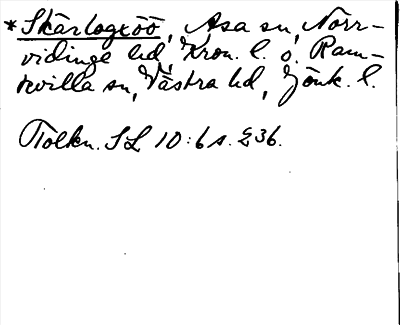 *Skärlogxöö, Asa sn, Norr-
vidinge hd, Kron. l. o. Ram-
kvilla sn, Västra hd, Jönk. l.
Tolkn. SL 10:6 s. 236.